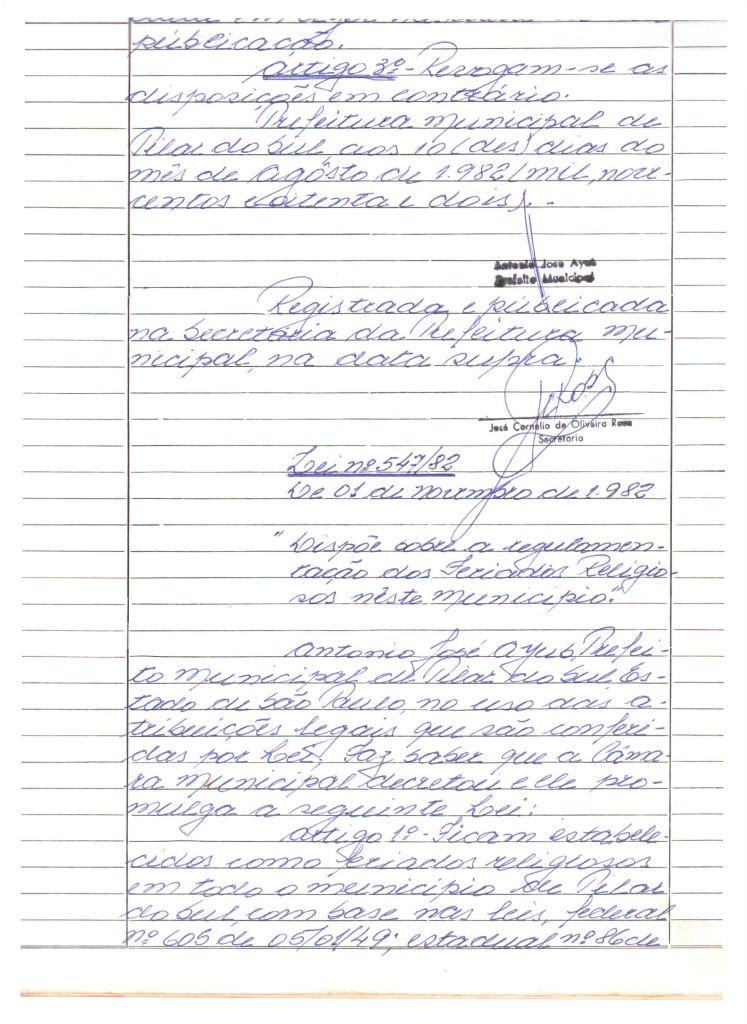 publicação.
Artigo 3º - Revogam-se as
disposições em contrário.
Prefeitura Municipal de
Pilar do Sul, aos 10 (des) dias do
mês de Agôsto de 1.982 (mil, nove-
centos e oitenta e dois). -
Antonio Jose Ayub
Prefeito Municipal
Registrada e publicada
na Secretária da Prefeitura Mu-
nicipal, na data supra.
José Cornélio de Oliveira Rosa
Secretário
Lei nº 547/82
De 01 de novembro de 1.982
"Dispõe sobre a regulamen-
tação dos Feriados Religio-
sos nêste município."
Antonio José Ayub, Prefei-
to Municipal de Pilar do Sul, Es-
tado de São Paulo, no uso das a-
tribuições legais que são conferi-
das por Lei, Faz saber que a Câma-
ra Municipal decretou e ele pro-
mulga a seguinte Lei:
Artigo 1º - Ficam estabele-
cidos como feriados religiosos
em todo o município de Pilar
do Sul, com base nas leis, federal
nº 605 de 05/01/49; estadual nº 86 de